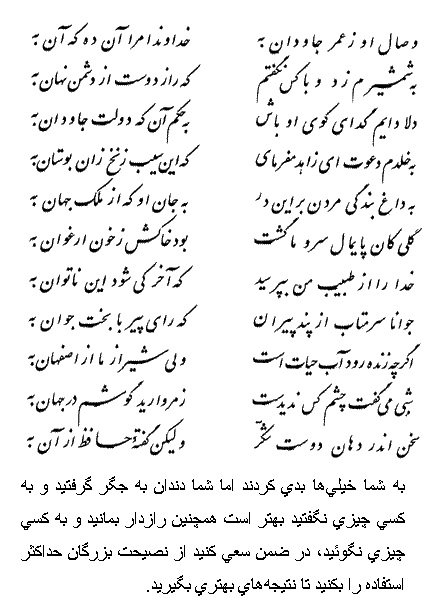 وصال او ز عمر جاودان به    خداوندا مرا آن ده که آن به
به شمشیرم زد و با کس نگفتم    که راز دوست از دشمن نهان به
دلا دایم گدای کوی او باش    به حکم آن که دولت جاودان به
به خلدم دعوت ای زاهد مفرمای    که این سیب زنخ زان بوستان به
به داغ بندگی مردن بر این در    به جان او که از ملک جهان به
گلی کان پایمال سرو ما گشت    بود خاکش ز خون ارغوان به
خدا را از طبیب من بپرسید    که آخر کی شود این ناتوان به
جوانا سر متاب از پند پیران    که رای پیر با بخت جوان به
اگرچه زنده رود آب حیات است    ولی شیراز ما از اصفهان به
شبی می گفت چشم کس ندیدست    ز مروارید گوشم در جهان به
سخن اندر دهان دوست شکر    ولیکن گفتهٔ حافظ از آن به
به شما خيلي‌ها بدي کردند اما شما دندان به جگر گرفتيد و به
کسي چيزي نگفتيد بهتر است همچنين رازدار بمانيد و به کسي
چيزي نگوئيد، در ضمن سعي کنيد از نصيحت بزرگان حداکثر
استفاده را بکنيد تا نتيجه‌هاي بهتري بگيريد.